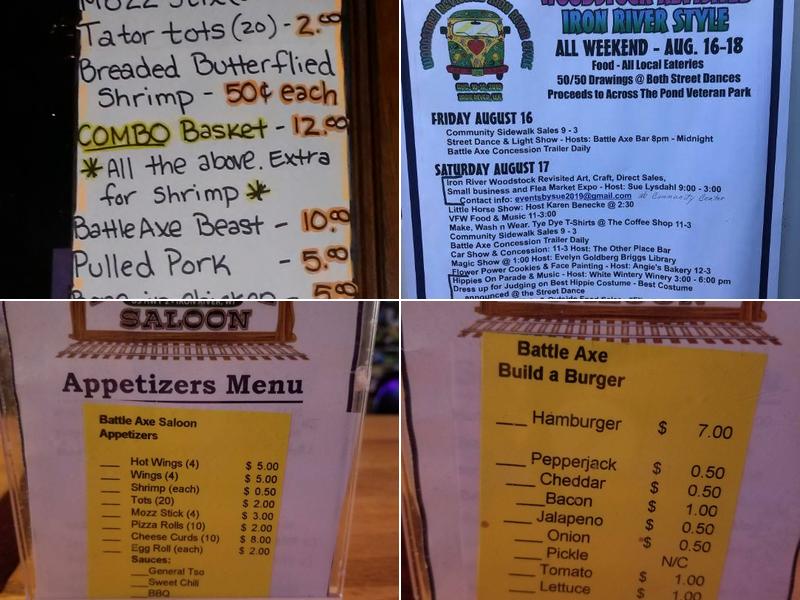 Tator tots (20) - 2.00
Breaded Butterflied
Shrimp - 50¢ each
COMBO Basket - 12.00
*All the above. Extra
for shrimp *
Battle Axe Beast - 10.00
Pulled Pork - 5.00
IRON RIVER STYLE
ALL WEEKEND - AUG. 16-18
Food - All Local Eateries
50/50 Drawings @ Both Street Dances
Proceeds to Across The Pond Veteran Park
FRIDAY AUGUST 16
Community Sidewalk Sales 9 - 3
Street Dance & Light Show - Hosts: Battle Axe Bar 8pm - Midnight
Battle Axe Concession Trailer Daily
SATURDAY AUGUST 17
Iron River Woodstock Revisited Art, Craft, Direct Sales,
Small business and Flea Market Expo - Host: Sue Lysdahl 9:00 - 3:00
Contact info: eventsbysue2019@gmail.com @ Community Center
Little Horse Show: Host Karen Benecke @ 2:30
VFW Food & Music 11-3:00
Make, Wash n Wear. Tye Dye T-Shirts @ The Coffee Shop 11-3
Community Sidewalk Sales 9 - 3
Battle Axe Concession Trailer Daily
Car Show & Concession: 11-3 Host: The Other Place Bar
Magic Show @ 1:00 Host: Evelyn Goldberg Briggs Library
Flower Power Cookies & Face Painting - Host: Angie's Bakery 12-3
Hippies On Parade & Music - Host: White Wintery Winery 3:00 - 6:00 pm
Dress up for Judging on Best Hippie Costume - Best Costume
announced @ the Street Dance
SALOON
Appetizers Menu
Battle Axe Saloon
Appetizers
___ Hot Wings (4) $ 5.00
___ Wings (4) $ 5.00
___ Shrimp (each) $ 0.50
___ Tots (20) $ 2.00
___ Mozz Stick (4) $ 3.00
___ Pizza Rolls (10) $ 2.00
___ Cheese Curds (10) $ 8.00
___ Egg Roll (each) $ 2.00
Sauces:
___General Tso
___Sweet Chili
___BBQ
Battle Axe
Build a Burger
___ Hamburger $ 7.00
___ Pepperjack $ 0.50
___ Cheddar $ 0.50
___Bacon $ 1.00
___ Jalapeno $ 0.50
___ Onion $ 0.50
___ Pickle N/C
___ Tomato $ 1.00
___ Lettuce $ 1.00